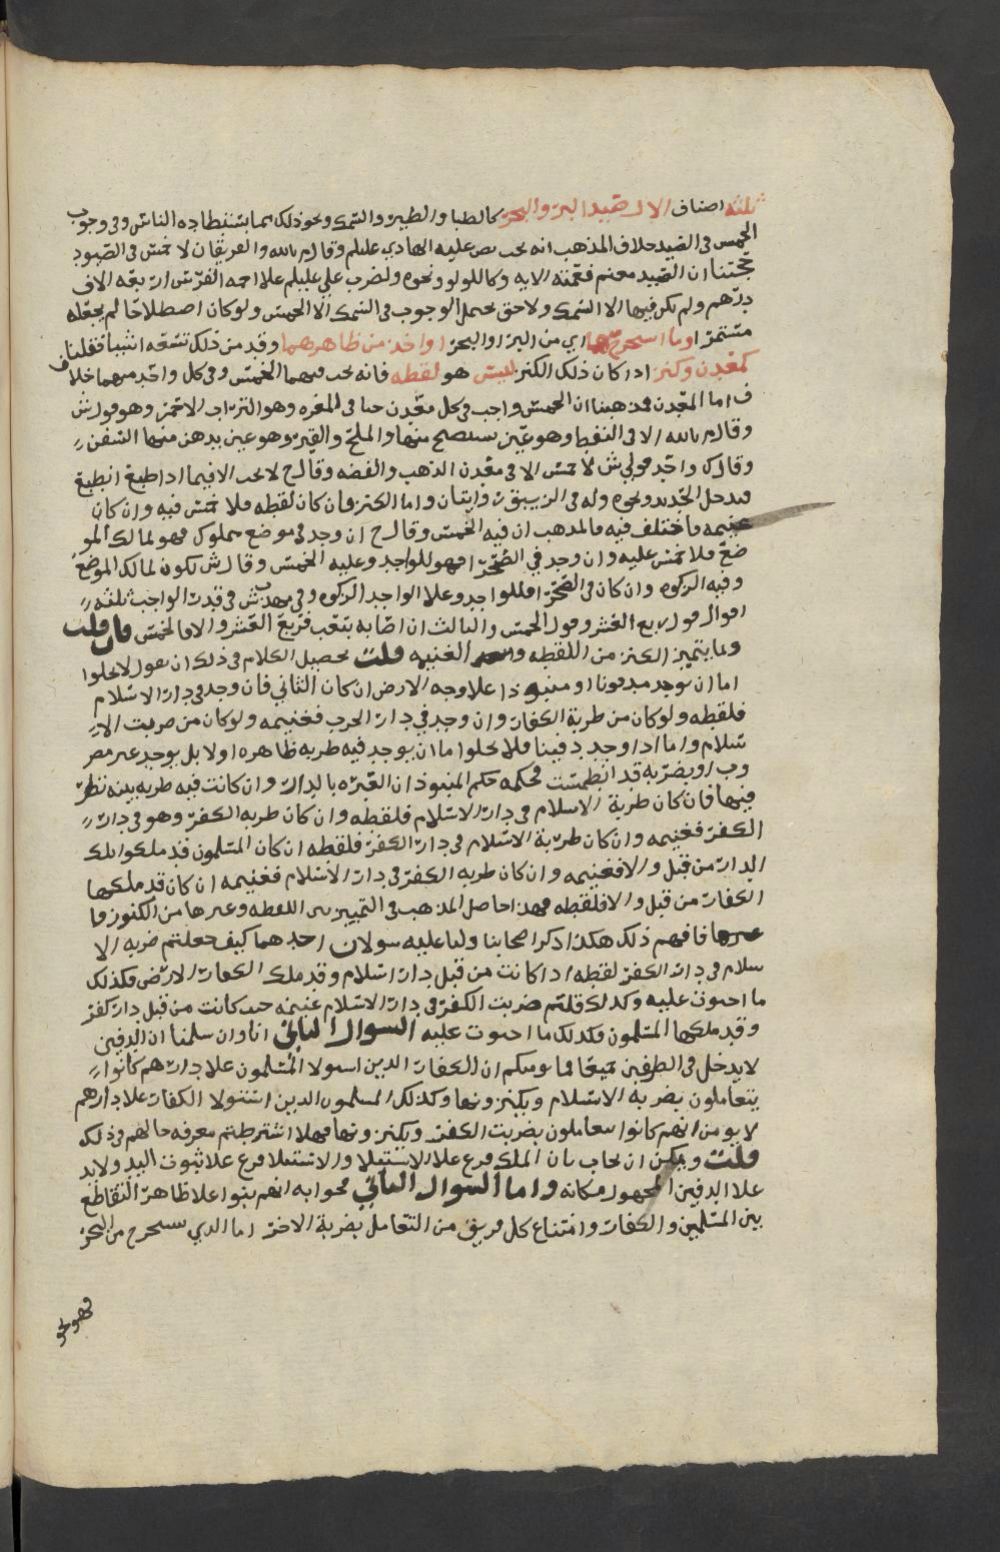 ثلثه اصناف الاول صيد البر والبحر كالظبا والطير والسمك ونحو ذلك مما يستطاده الناس وفي وجوب
الخمس في الصيد خلاف المذهب انه يجب نص عليه الهادي عليلم وقال م بالله والفريقان لا خمس في الصيود
حجتنا ان الصيد مغنم فعمته الايه وكاللولو ونحوه ولضرب علي عليلم علا اجمه الفرس اربعه الاف
درهم ولم يكن فيها الا السمك ولا حق يحتمل الوجوب في السمك الا الخمس ولو كان اصطلاحا لم يجعله
مستمرا وما استخرج منهما اي من البر او البحر او اخذ من ظاهرهما وقد من ذلك تسعه اشيا فقلنا
كمعدن وكنز اذا كان ذلك الكنز ليس هو لقطه فانه يجب فيهما الخمس وفي كل واحد منهما خلاف
اما المعدن فمذهبنا ان الخمس واجب في كل معدن حتا في المغره وهو التراب الاحمر وهو قول ش
وقال م بالله الا في النفط وهو عين يستصبح منها والملح والقير وهو عين يدهن منها السفن
وقال ك واحد قولي ش لا خمس الا في معدن الذهب والفضه وقال ح لا يجب الا فيما اذا طبع انطبع
فيدخل الحديد ونحوه وله في الزيبق روايتان واما الكنز فان كان لقطه فلا خمس فيه وان كان
غنيمه فاختلف فيه فالمذهب ان فيه الخمس وقال ح ان وجد في موضع مملوك فهو لمالك المو
ضع فلا خمس عليه وان وجد في الصحرا فهو للواجد وعليه الخمس وقال ش يكون لمالك الموضع
وفيه الزكوه وان كان في الصحرا فللواجد وعلا الواجد الزكوه وفي مذهب ش في قدر الواجب ثلثه
اقوال قول ربع العشر وقول الخمس والثالث ان اصابه بتعب فربع العشر والا فالخمس فان قلت
وبما يتميز الكنز من اللقطه و الغنيمه قلت تحصيل الكلام في ذلك ان نقول لا يخلوا
اما ان يوجد مدفونا او منبوذا علا وجه الارض ان كان الثاني فان وجد في دار الاسلام
فلقطه ولو كان من ضربة الكفار وان وجد في دار الحرب فغنيمه ولو كان من ضربت الا
سلام واما اذا وجد دفينا فلا يخلوا اما ان يوجد فيه ضربه ظاهره اولا بل يوجد غير مضر
وب او بضربه قد انطمست فحكمه حكم المنبوذ ان العبره بالدار وان كانت فيه ضربه بينه نظر
فيها فان كان ضربة الاسلام في دار الاسلام فلقطه وان كان ضربه الكفر وهو في دار
الكفر فغنيمه وان كان ضربة الاسلام في دار الكفر فلقطه ان كان المسلمون قد ملكوا تلك
الدار من قبل والا فغنيمه وان كان ضربه الكفر في دار الاسلام فغنيمه ان كان قد ملكها
الكفار من قبل والا فلقطه فهذا حاصل المذهب في التمييز بين اللقطه وغيرها من الكنوز وما
غيرها فافهم ذلك هكذا ذكر اصحابنا ولنا عليه سولان احدهما كيف جعلتم ضربه الا
سلام في دار الكفر لقطه اذا كانت من قبل دار اسلام وقد ملك الكفار الارض فكذلك
ما احتوت عليه وكذلك قلتم ضربت الكفر في دار الاسلام غنيمه حيث كانت من قبل دار كفر
وقد ملكها المسلمون فكذلك ما احتوت عليه السوال الثاني انا وان سلمنا ان الدفين
لا يدخل في الطرفين جميعا فما يومنكم ان الكفار الذين استولا المسلمون علا دارهم كانوا
يتعاملون بضربه الاسلام ويكنزونها وكذلك المسلمون الذين استولا الكفار علا دارهم
لا يومن انهم كانوا يتعاملون بضربت الكفر ويكنزونها فهلا اشترطتم معرفه حالهم في ذلك
قلت ويمكن ان يجاب بان الملك فرع علا الاستيلا والاستيلا فرع علا ثبوت اليد ولا يد
علا الدفين المجهول مكانه واما السوال الثاني فجوابه انهم بنوا علا ظاهر التقاطع
بين المسلمين والكفار وامتناع كل فريق من التعامل بضربة الاخر اما الذي يستخرج من البحر
فهو نحو